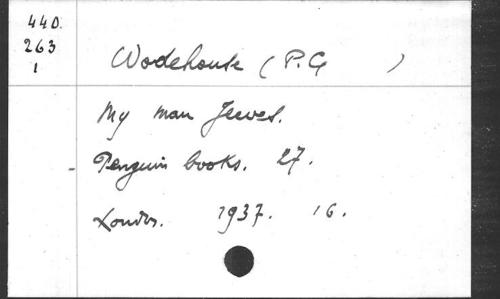 440.
263
1
Wodehouse (P.G )
My man Jeeves.
Penguin books. 27.
London. 1937. 16.